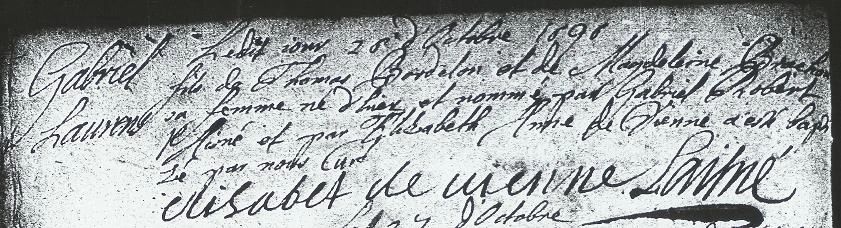 Gabriel
Laurens
Ledit jour 28e d'Octobre 1698
fils de Thomas Bordelon et de Magdeleine
sa femme né d'hier et nommé par Gabriel Robert
et par Elizabeth Anne de Vienne a esté bapti
zé par nous Curé
elisabet de vienne Laisné
27 d'Octobre